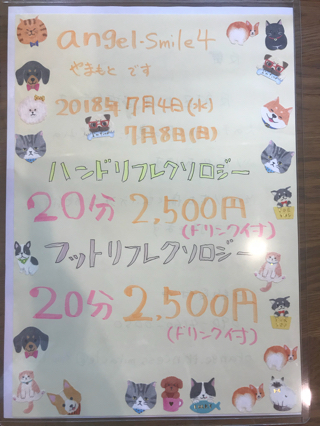 angel-smile4
やまもと です
2018年7月4日(水)
7月8日(日)
ハンドリフレクソロジー
20分 2,500円
(ドリンク付)
フットリフレクソロジー
20分 2,500円
(ドリンク付)